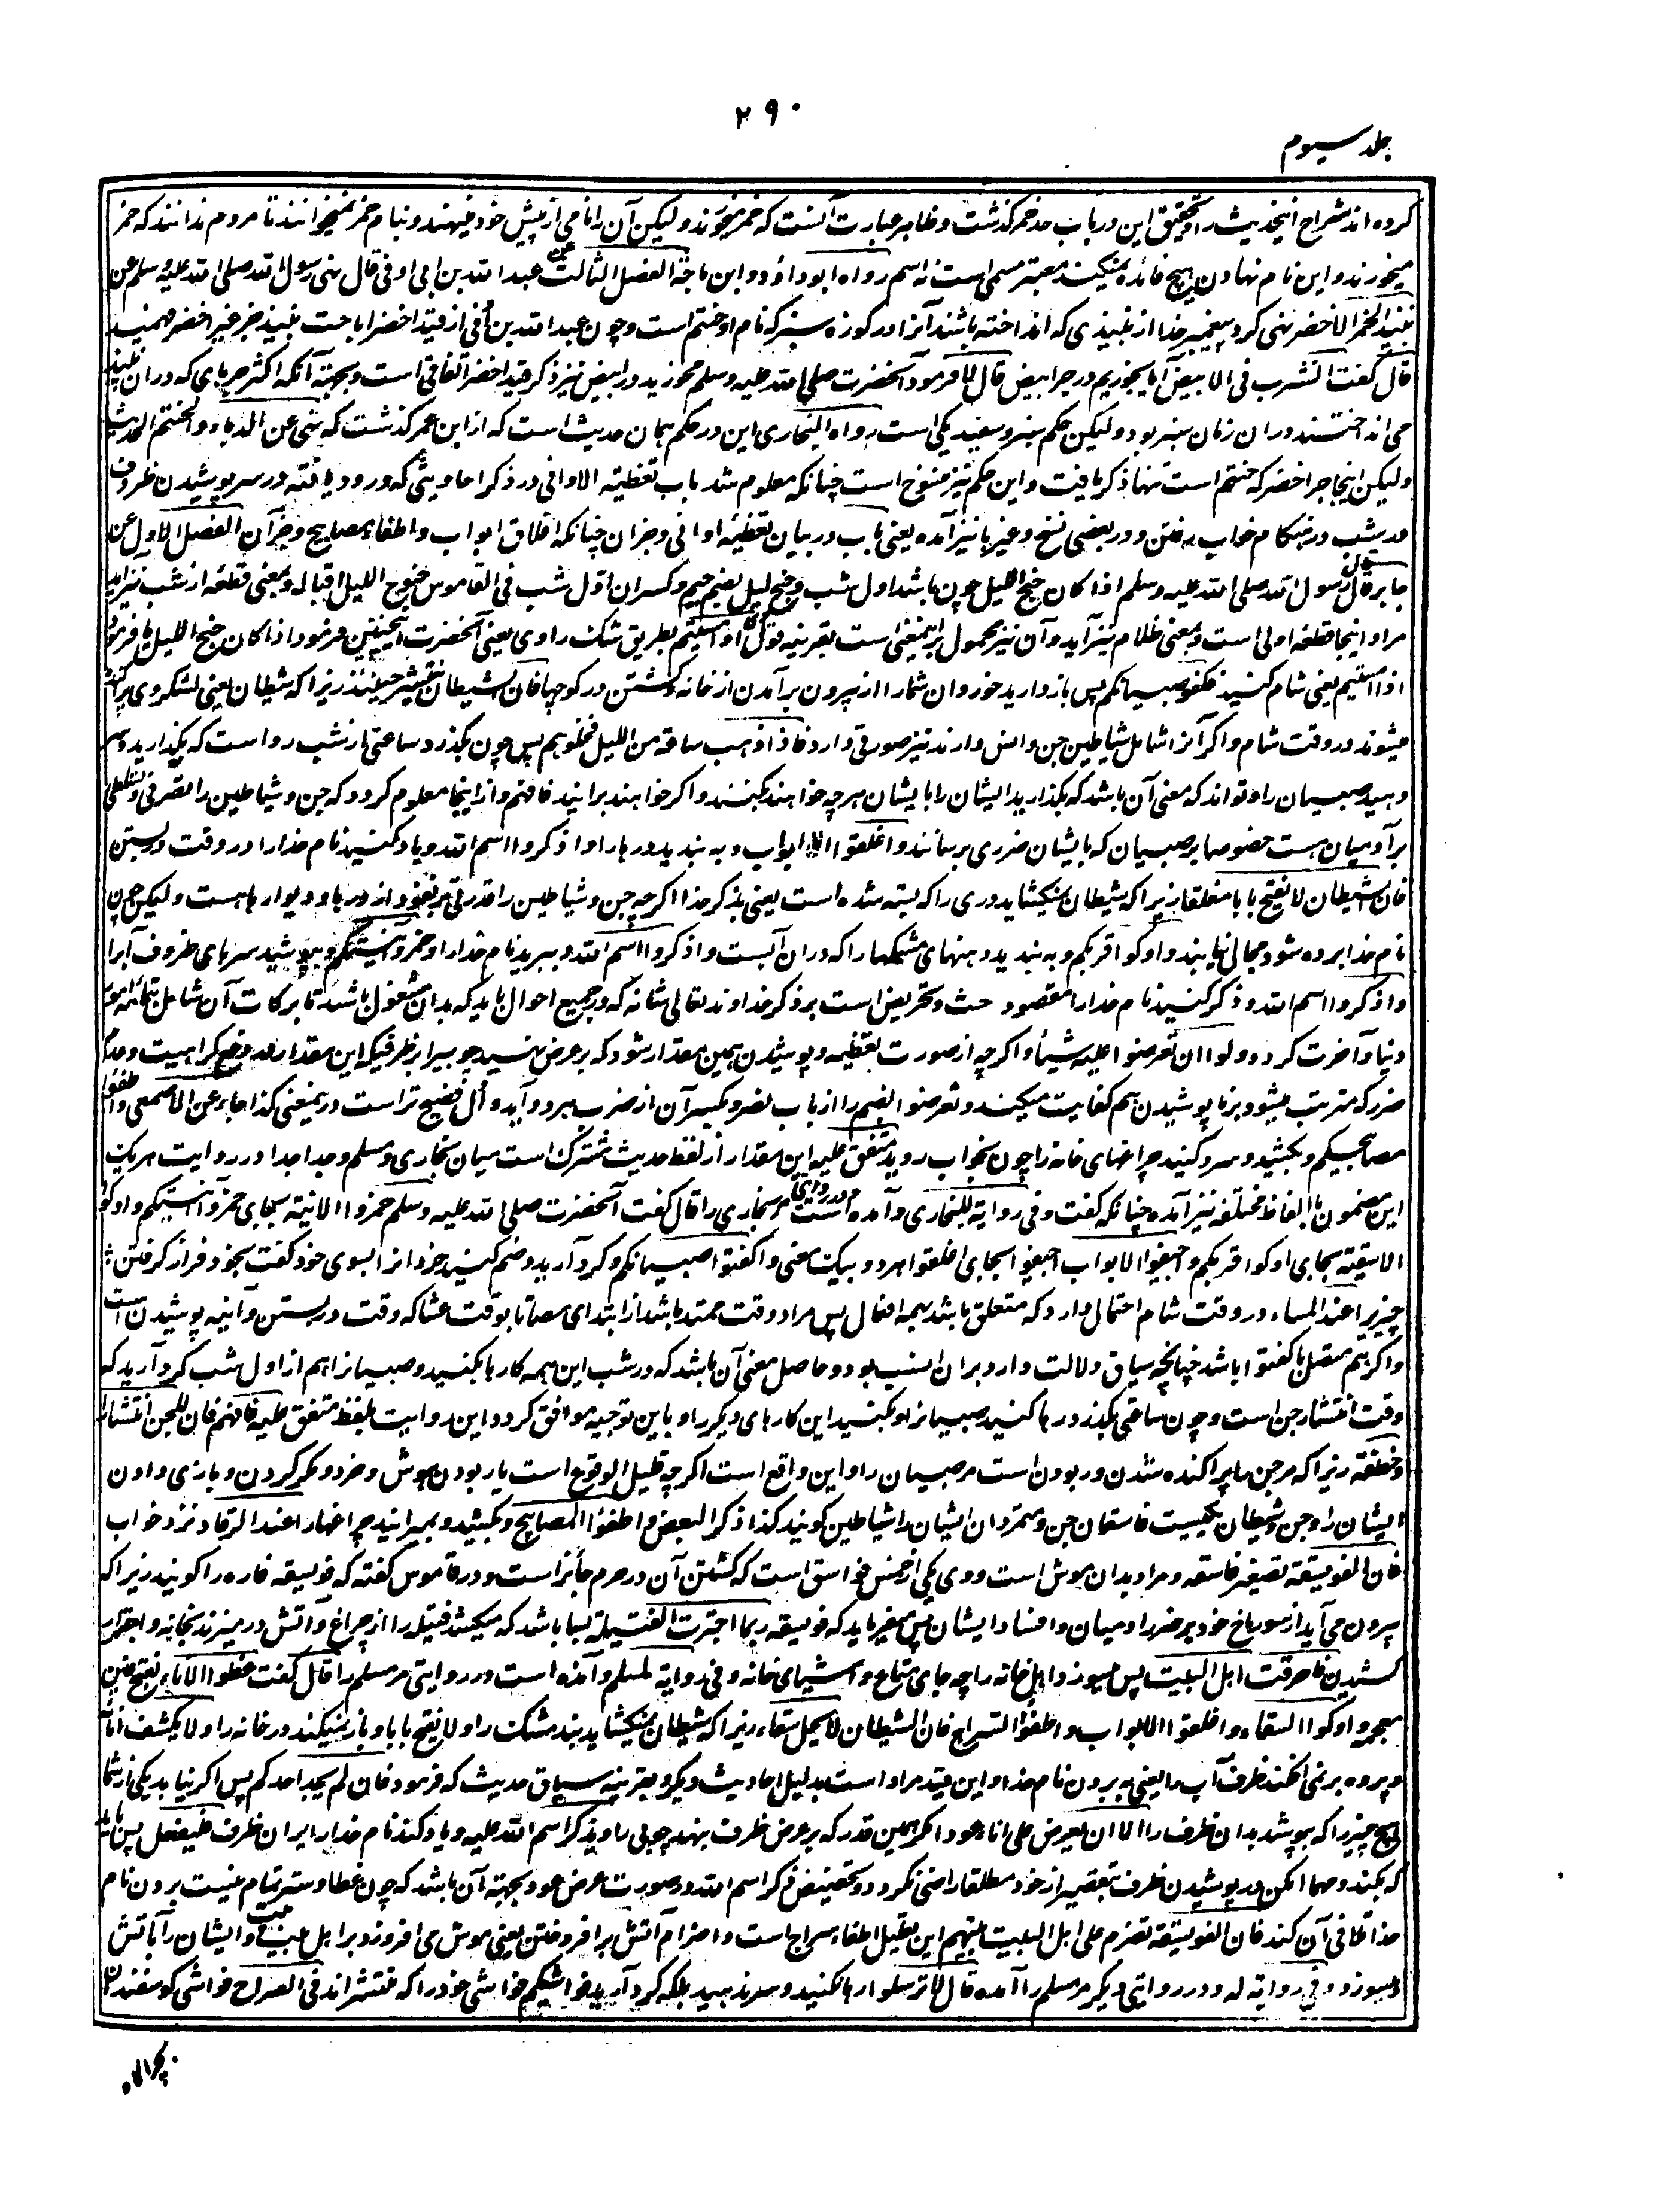 ۲۹۰
جلد سیوم
کرده اند شراح اینحدیث را و تحقیق این در باب حد خمر گذشت و ظاهر عبارت آنست که خمر میخورند و لیکن آن را نامی از پیش خود مینهند و بنام خمر نمیخوانند تا مردم ندانند که خمر
میخورند و این نام نهادن هیچ فائده نمیکند معتبر مسمی است نه اسم رواه ابو داؤد و ابن ماجة الفصل الثالث عن عبد الله بن ابی اوفی قال نهی رسول الله صلی الله علیه وسلم عن
نبیذ الجر الاخضر نهی کرد پیغمبر خدا از نبیذی که انداخته باشند آنرا در کوزه سبز که نام او حنتم است و چون عبد الله بن ابی اوفی از قید اخضر اباحت نبیذ جر غیر اخضر فهمید
قال گفت انشرب فی الابیض آیا بخوریم در جر ابیض قال لا فرمود آنحضرت صلی الله علیه وسلم مخورید در ابیض نیز ذکر قید اخضر اتفاقی است و بجهة آنکه اکثر جرهای که دران نبیذ
می انداختند دران زمان سبز بود و لیکن حکم سبز و سفید یکی است رواه البخاری این در حکم همان حدیث است که از ابن عمر گذشت که نهی عن الدباء و الحنتم الحدیث
و لیکن اینجا جر اخضر که حنتم است تنها ذکر یافت و این حکم نیز منسوخ است چنانکه معلوم شد باب تغطیة الاوانی در ذکر احادیثی که ورود یافته در سر پوشیدن ظروف
در شب در هنگام خواب رفتن و در بعضی نسخ و غیرها نیز آمده یعنی باب در بیان تغطیه اوانی و جزان چنانکه اغلاق ابواب و اطفاء مصابیح و جزآن الفصل الاول عن
جابر قال قال رسول الله صلی الله علیه وسلم اذا کان جنح اللیل چون باشد اول شب و جنح لیل بضم جیم و کسر ان اول شب فی القاموس جنوح اللیل اقباله و بمعنی قطعه از شب نیز آید
مراد اینجا قطعه اولی است و بمعنی ظلام نیز آید و آن نیز محمول بر اینمعنی است بقرینه قول او او امسیتم بطریق شک راوی یعنی آنحضرت اینچنین فرمود اذا کان جنح اللیل یا فرمود
اذا امسیتم یعنی شام کنید فکفوا صبیانکم پس باز دارید خوردان شما را از بیرون برآمدن از خانه و گشتن در کوچها فان الشیطان ینتشر حینئذ زیرا که شیطان یعنی لشکر وی پراگنده
میشوند در وقت شام و اگر آنرا شامل شیاطین جن و انس دارند نیز صورتی دارد فاذا ذهب ساعة من اللیل فخلوهم پس چون بگذرد ساعتی از شب رواست که بگذارید و سر
دهید صبیان را و تواند که معنی آن باشد که بگذارید ایشان را با ایشان هر چه خواهند بکنند و اگر خواهند برایند فافهم و ازاینجا معلوم گردد که جن و شیاطین را تصرفی و تسلطی
بر آدمیان هست خصوصا بر صبیان که بایشان ضرری برسانند و اغلقوا الابواب و به بندید درها را و اذکروا اسم الله و یاد کنید نام خدا را در وقت در بستن
فان الشیطان لا یفتح بابا مغلقا زیرا که شیطان نمیگشاید دری را که بسته شده است یعنی بذکر خدا اگرچه جن و شیاطین را قدرتی بر نفوذ از درها و دیوارها هست و لیکن چون
نام خدا برده شود مجالی نیابند و اوکوا قربکم و به بندید دهنهای مشکها را که دران آبست و اذکروا اسم الله و ببرید نام خدا را و خمروا آنیتکم و بپوشید سرهای ظروف آبرا
و اذکروا اسم الله و ذکر کنید نام خدا را مقصود حث و تحریض است بر ذکر خداوند تعالی شانه که در جمیع احوال باید که بدان مشغول باشد تا برکات آن شامل تمامه امور
دنیا و آخرت گردد و لو ان تعرضوا علیه شیئا و اگرچه از صورت تغطیه و پوشیدن همین مقدار شود که بر عرض نهید چوبی را بر ظرفیکه این مقدار در دفع کراهیت و عدم
ضرر که مترتب میشود بر نا پوشیدن هم کفایت میکند و تعرضوا لضم را از باب نصر و بکسر آن از ضرب هر دو آید و اول فصیح تر است درینمعنی کذا جاء عن الاصمعی و اطفؤا
مصابیحکم و بکشید و سرد کنید چراغهای خانه را چون بخواب روید متفق علیه این مقدار از لفظ حدیث مشترک است میان بخاری و مسلم و جدا جدا در روایت هر یک
این مضمون با الفاظ مختلفه نیز آمده چنانکه گفت و فی روایة للبخاری و آمده است در روایتی مر بخاری را قال گفت آنحضرت صلی الله علیه وسلم خمروا الآنیة بجای خمروا آنیتکم و اوکوا
الاسقیة بجای اوکوا قربکم و اجیفوا الابواب اجیفوا بجای اغلقوا هر دو بیک معنی و اکفتوا صبیانکم و گرد آرید و ضم کنید خردانرا بسوی خود کفت بخود فراز گرفتن
چیزیرا عند المساء در وقت شام احتمال دارد که متعلق باشد بهمه افعال پس مراد وقت ممتد باشد از ابتدای مسا تا بوقت عشا که وقت در بستن و آنیه پوشیدن است
و اگر هم متصل با کفتوا باشد چنانچه سیاق دلالت دارد بران انسب بود و حاصل معنی آن باشد که در شب این همه کارها بکنید و صبیانرا هم از اول شب گرد آرید که
وقت انتشار جن است و چون ساعتی بگذرد رها کنید صبیانرا و بکنید این کارهای دیگر را و باین توجیه موافق گردد این روایت بلفظ متفق علیه فافهم فان للجن انتشارا
و خطفة زیرا که مر جن را پراکنده شدن و ربودن است مر صبیان را و این واقع است اگرچه قلیل الوقوع است یا ربودن هوش و خرد و مکر کردن و بازی دادن
ایشان را و جن و شیطان یکیست فاسقان جن و متمردان ایشان را شیاطین گویند کذا ذکر البعض و اطفؤا المصابیح و بکشید و بمیرانید چراغها را عند الرقاد نزد خواب
فان الفویسقة تصغیر فاسقه و مراد بدان موش است و وی یکی از خمس فواسق است که کشتن آن در حرم جائز است و در قاموس گفته که فویسقه فاره را گویند زیرا که
بیرون می آید از سوراخ خود بر ضرر آدمیان و افساد ایشان پس میفرماید که فویسقه ربما اجترت الفتیلة بسا باشد که میکشد فتیله را از چراغ و آتش در میزند بخانه و اجترار
کشیدن فاحرقت اهل البیت پس میسوزد اهل خانه را چه جای متاع و اشیای خانه و فی روایة لمسلم و آمده است در روایتی مر مسلم را قال گفت غطوا الاناء بفتح غین
معجمه و اوکوا السقاء و اغلقوا الابواب و اطفؤا السراج فان الشیطان لا یحل سقاء زیرا که شیطان نمیگشاید بند مشک را و لا یفتح بابا و باز نمیکند در خانه را و لا یکشف اناء
و پرده بر نمی افکند ظرف آب را یعنی به بردن نام خدا و این قید مراد است بدلیل احادیث دیگر و بقرینه سیاق حدیث که فرمود فان لم یجد احدکم پس اگر نیابد یکی از شما
هیچ چیز را که بپوشد بدان ظرف را الا ان یعرض علی اناءه عودا مگر همین قدر که بر عرض ظرف بنهد چوبی را و یذکر اسم الله علیه و یاد کند نام خدا را بران ظرف فلیفعل پس باید
که بکند و مهما امکن در پوشیدن ظرف بتقصیر از خود مطلقا راضی نگردد و تخصیص ذکر اسم الله در صورت عرض عود بجهة آن باشد که چون غطا و ستر تمام نیست بردن نام
خدا تلافی آن کند فان الفویسقة تضرم علی اهل البیت بیتهم این تعلیل اطفاء سراج است و اضرام آتش بر افروختن یعنی موش می افروزد بر اهل بیت و ایشان را آتش
بسوزد و فی روایة له و در روایتی دیگر مر مسلم را آمده قال لا ترسلوا رها نکنید و سر ندهید بلکه گرد آرید فواشیکم مواشی خود را که منتشر اند فی الصراح فواشی گوسفندان